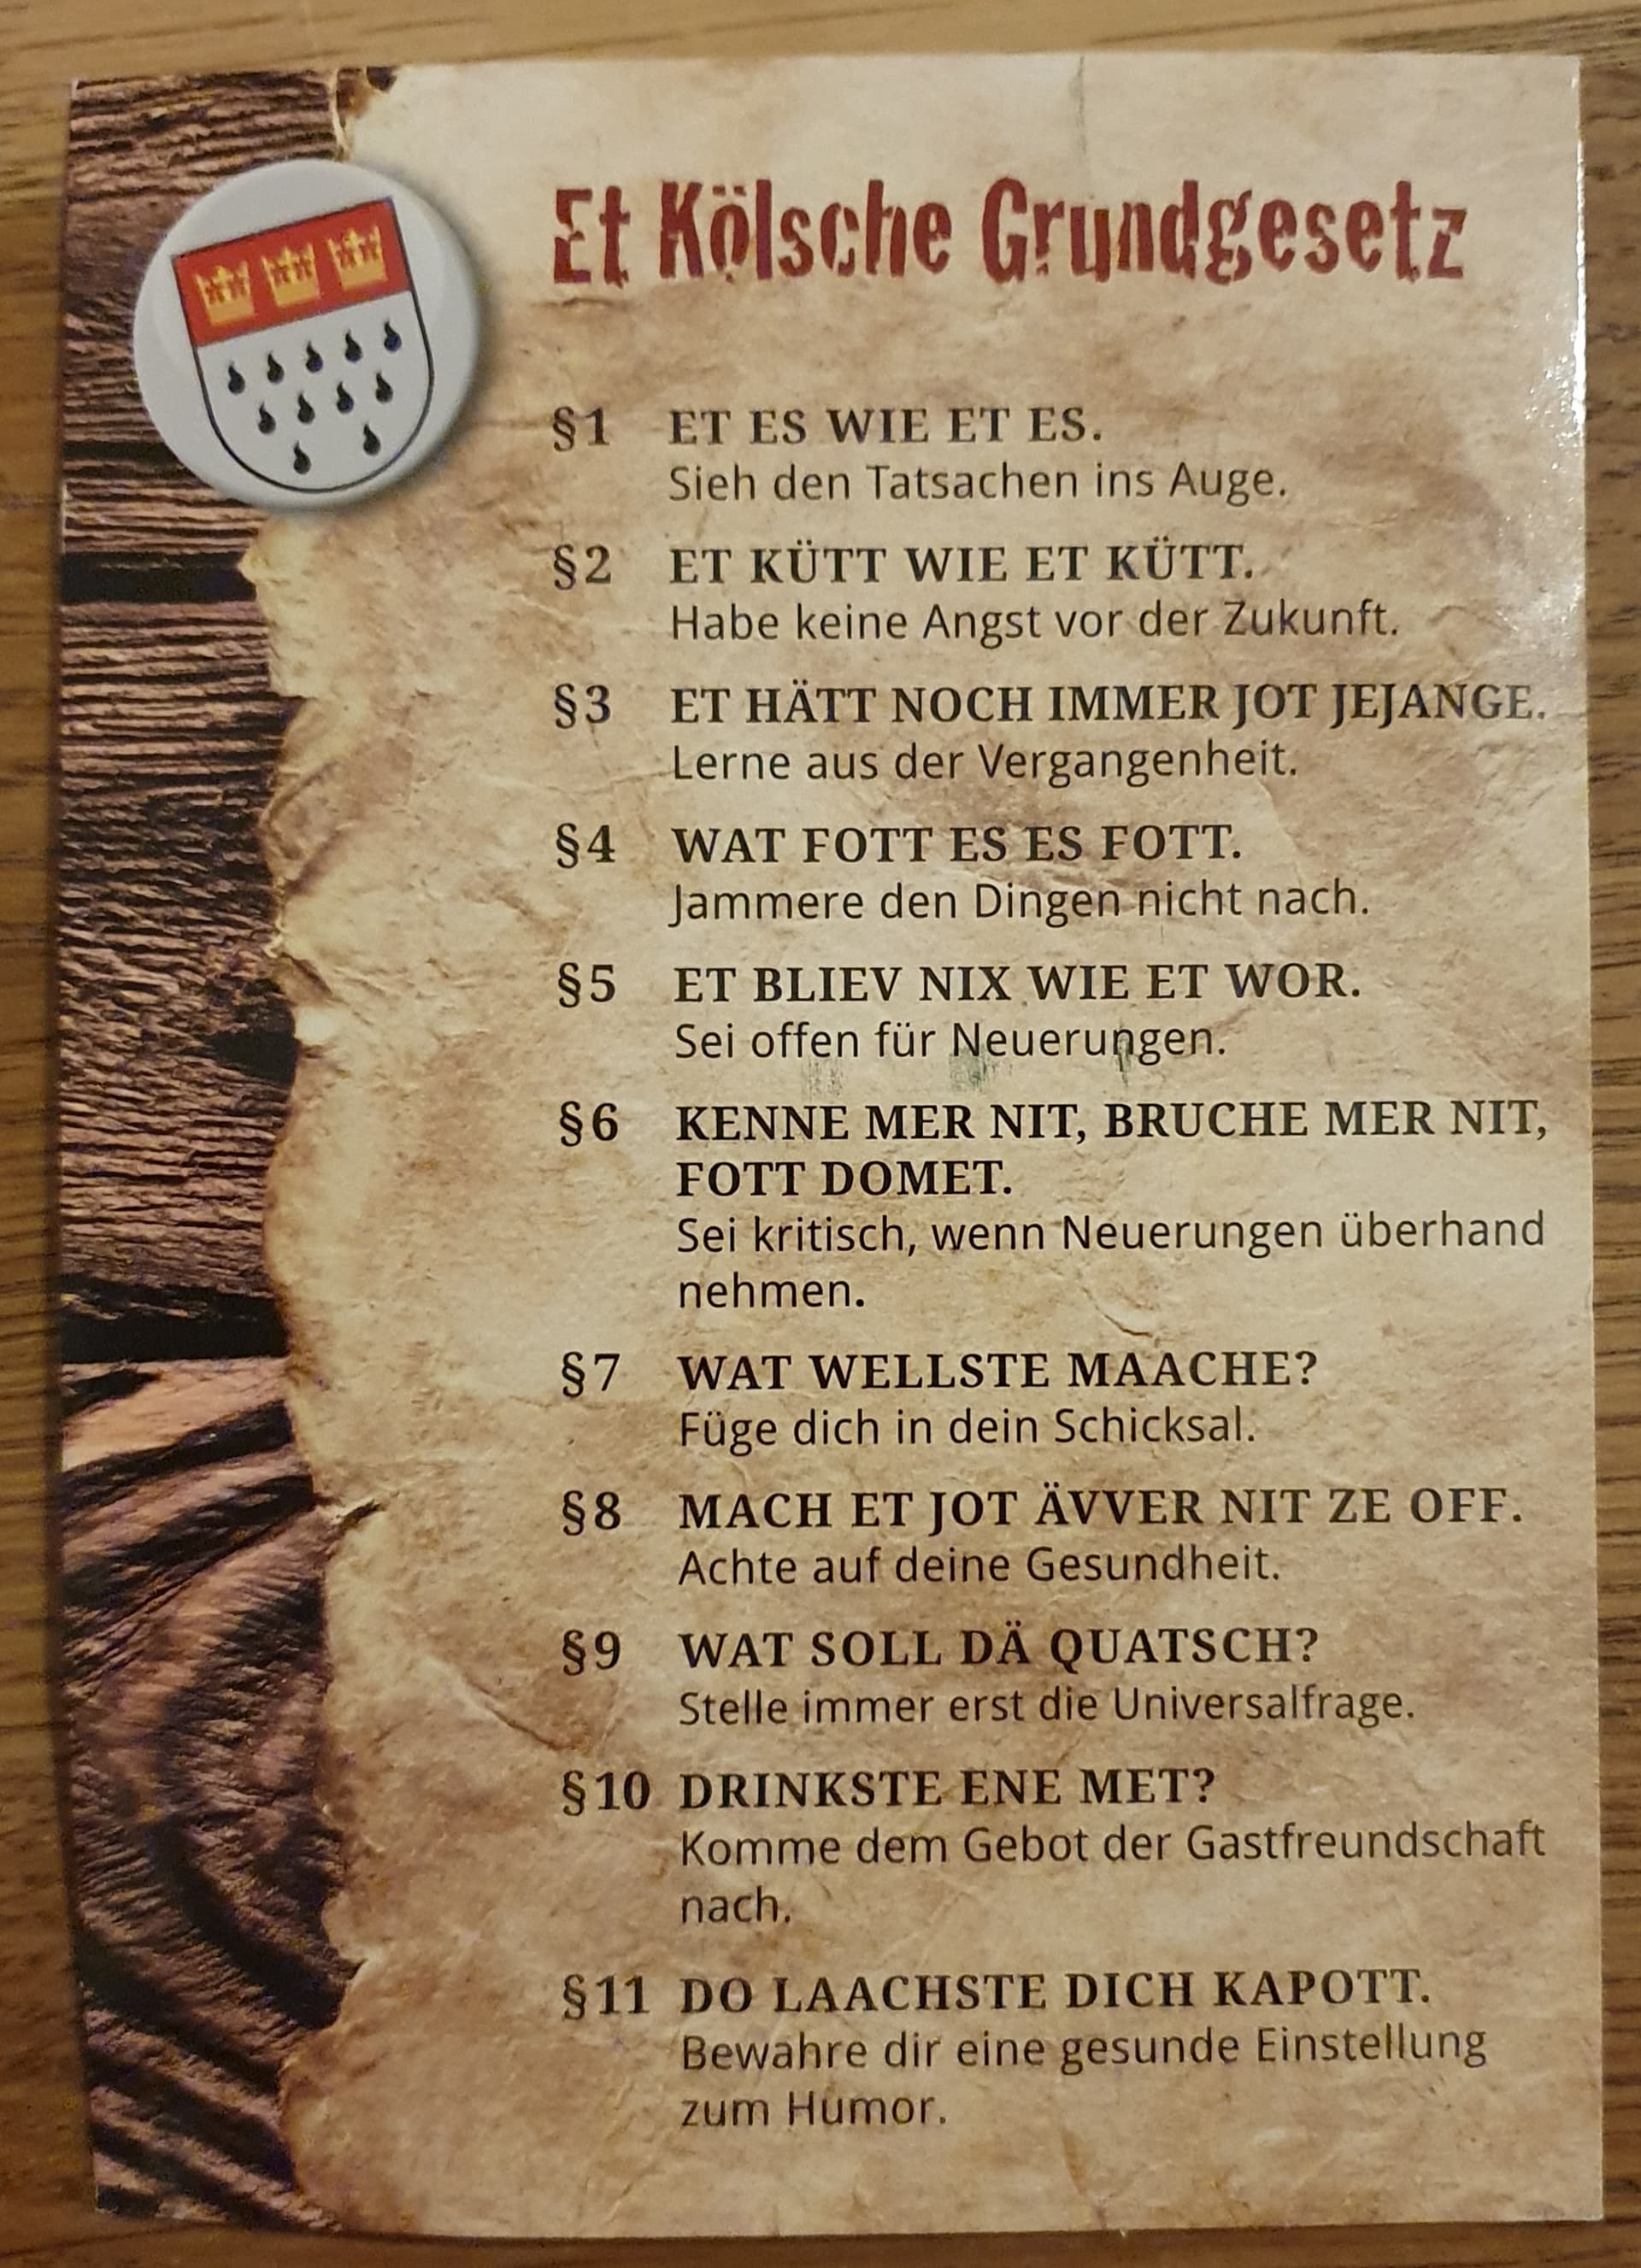 Et Kölsche Grundgesetz
§1 ET ES WIE ET ES.
Sieh den Tatsachen ins Auge.
§2 ET KÜTT WIE ET KÜTT.
Habe keine Angst vor der Zukunft.
§3 ET HÄTT NOCH IMMER JOT JEJANGE.
Lerne aus der Vergangenheit.
§4 WAT FOTT ES ES FOTT.
Jammere den Dingen nicht nach.
§5 ET BLIEV NIX WIE ET WOR.
Sei offen für Neuerungen.
§6 KENNE MER NIT, BRUCHE MER NIT,
FOTT DOMET.
Sei kritisch, wenn Neuerungen überhand
nehmen.
§7 WAT WELLSTE MAACHE?
Füge dich in dein Schicksal.
§8 MACH ET JOT ÄVVER NIT ZE OFF.
Achte auf deine Gesundheit.
§9 WAT SOLL DÄ QUATSCH?
Stelle immer erst die Universalfrage.
§10 DRINKSTE ENE MET?
Komme dem Gebot der Gastfreundschaft
nach.
§11 DO LAACHSTE DICH KAPOTT.
Bewahre dir eine gesunde Einstellung
zum Humor.